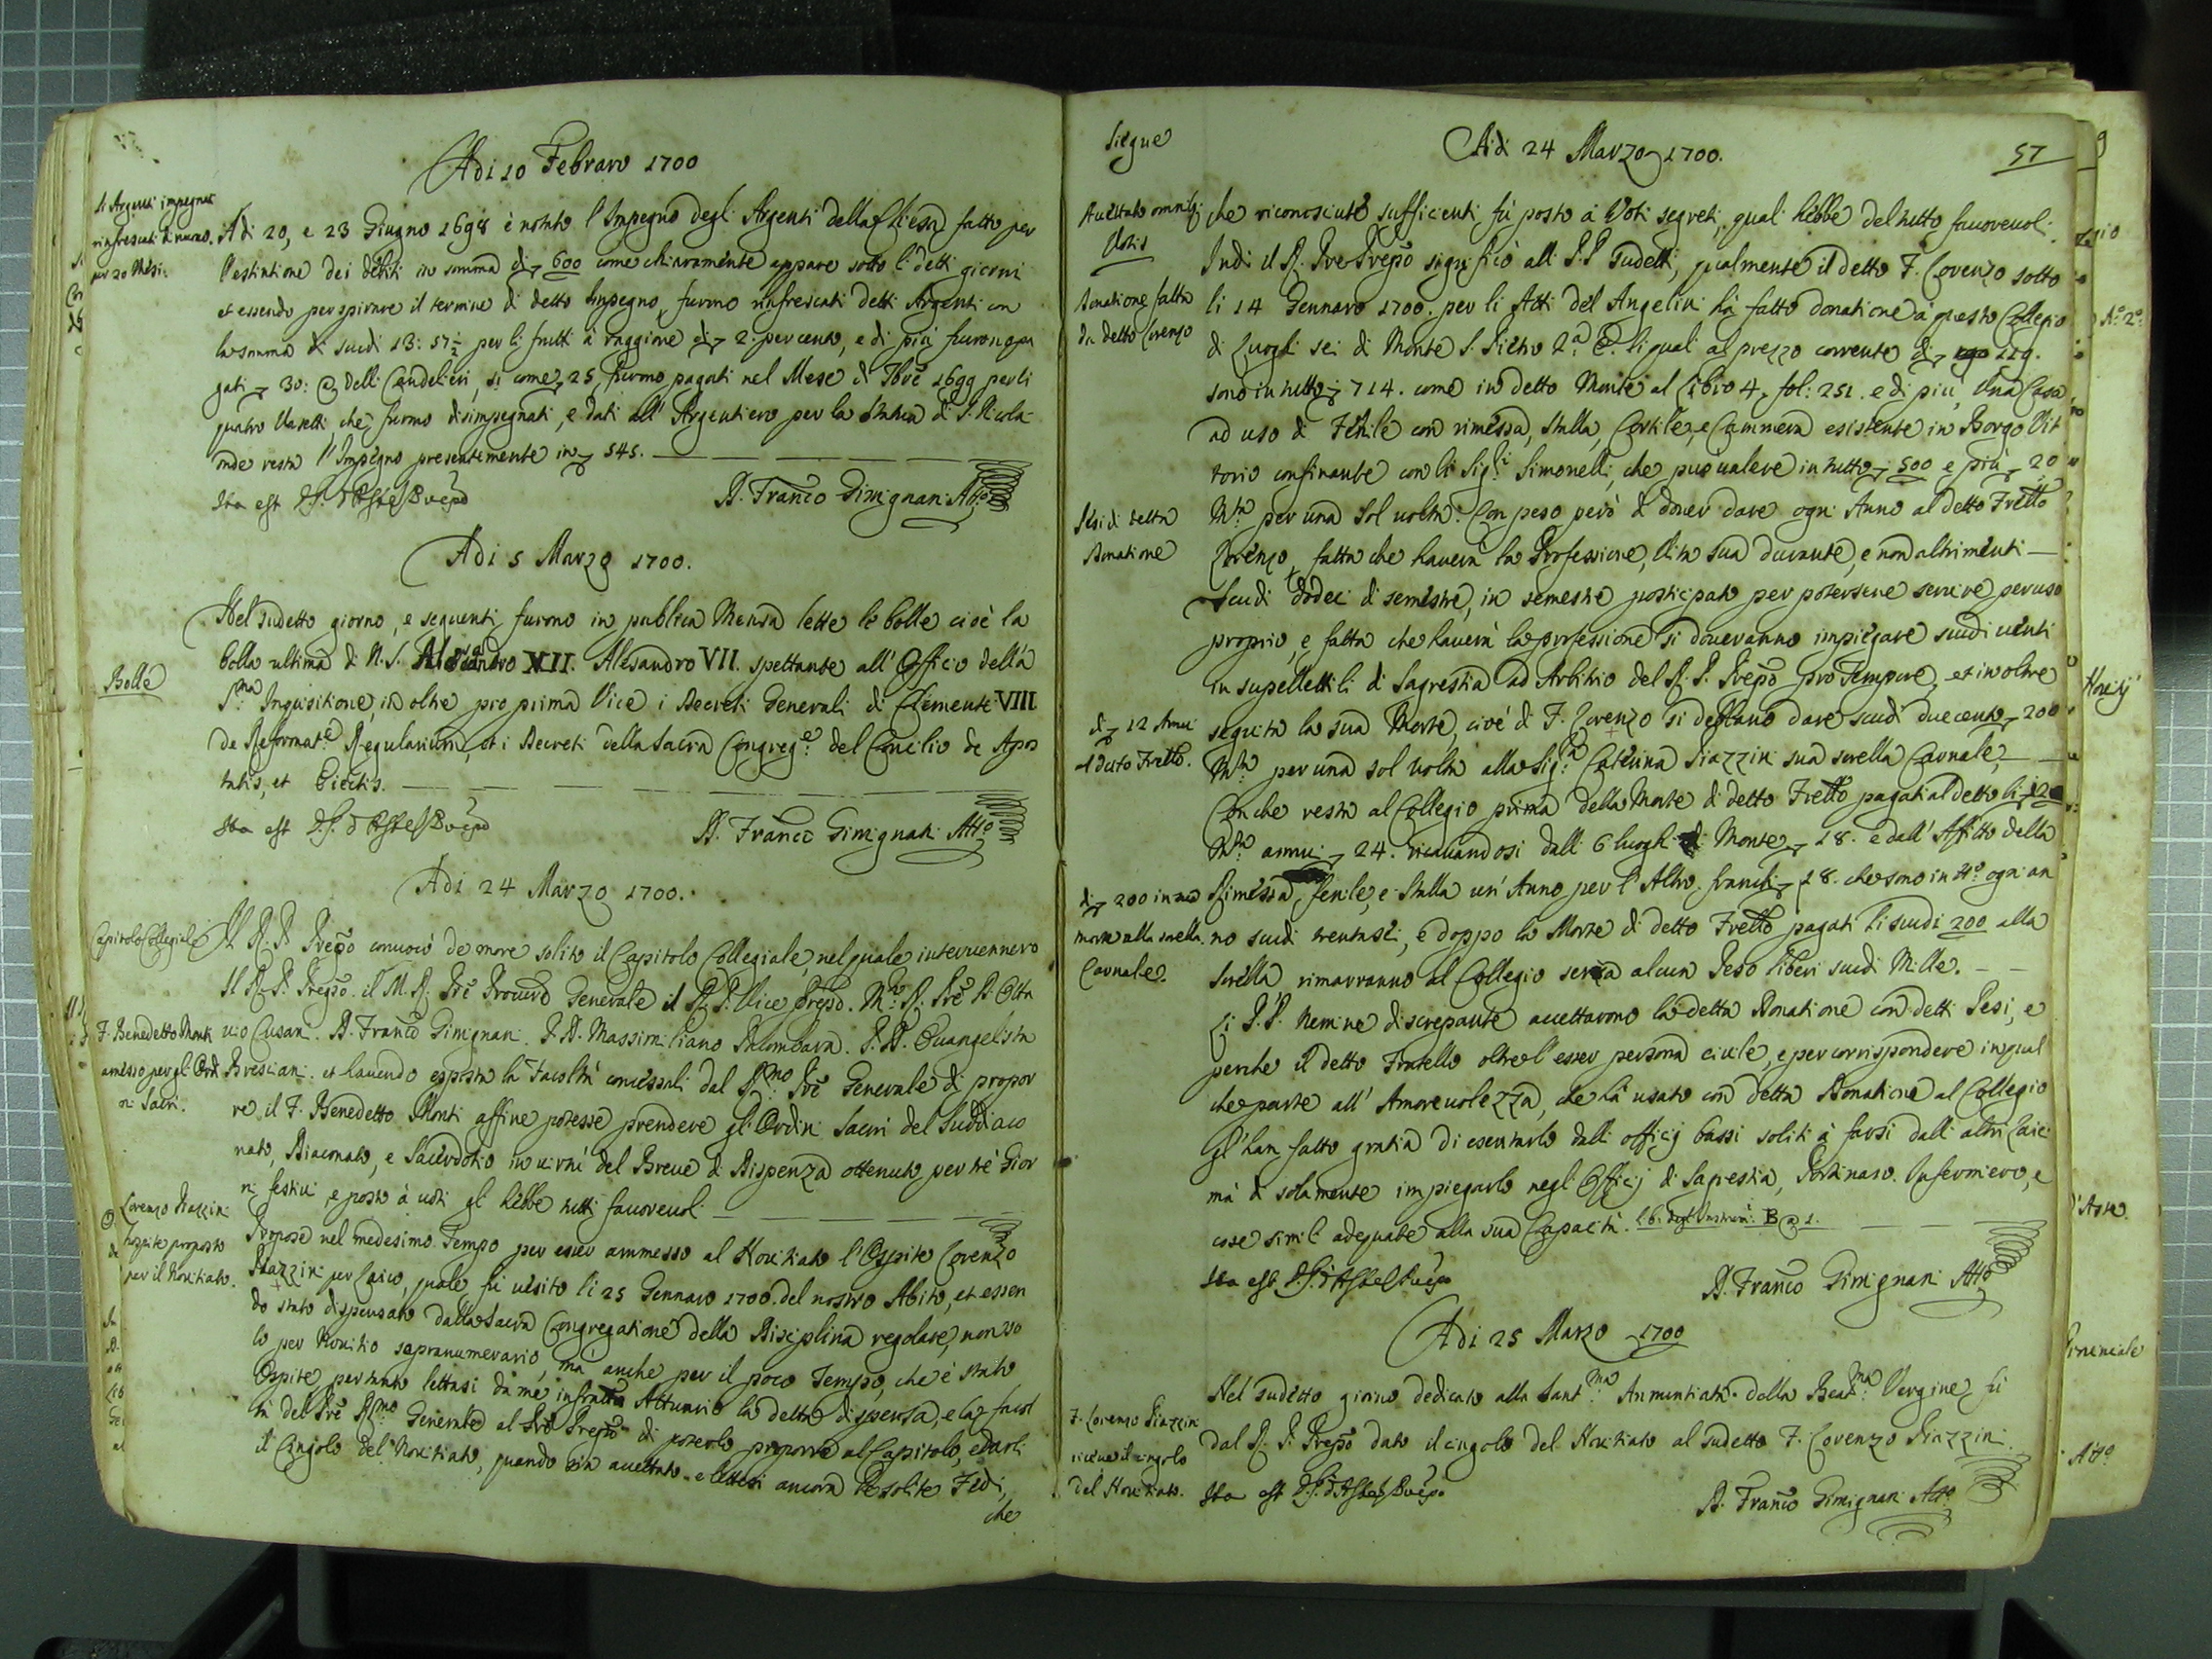 Adi 10 Febraro 1700
li Argenti impegnati
rinfrescati di nuovo
per 20 Mesi.
Adi 20, e 23 Giugno 1698 è notato l'Impegno degl'Argenti della Chiesa fatto per
l'estintione dei debiti in somma di 600 come chiaramente appare sotto li detti giorni
et essendo per spirare il termine di detto Impegno, furono rinfrescati detti Argenti con
la somma di scudi 13: 57½ per li frutti à raggione di 2. per cento, e di più furono pa
gati 30: delli Candelieri, si come 25, furono pagati nel Mese di 7bre 1699 per li
quatro Vasetti che furono disimpegnati, e dati all'Argentiero per la statua di S. Nicola
onde resta l'Impegno presentemente in 545.
Ita est
D. Franco Gimignani Atto
Adi 5 Marzo 1700.
Bolle
Nel sudetto giorno, e sequenti furono in publica Mensa lette le bolle cioè la
bolla ultima di N. S. Alesandro XII. Alesandro VII. spettante all'Officio della
Sma Inquisitione, in oltre pro prima Vice i Decreti Generali di Clemente VIII
de Reformat.e Regularium, et i Decreti della Sacra Congreg.e del Concilio de Apos
tatis, et Eiectis.
Ita est
D. Franco Gimignani Atto
Adi 24 Marzo 1700.
Capitolo Collegiale
Il R. P. Prepo convocò de more solito il Capitolo Collegiale, nel quale intervennero
Il R. P. Prepo. il M. R. Pre Procurre Generale il R. P. Vice Prepo. M.to R. Pre D. Otta
vio Cusani. D. Franco Gimignani. P. D. Massimiliano Palombara. P. D. Evangelista
F. Benedetto Monti
amesso per gl'Ordi
ni Sacri.
Bresciani. et havendo esposta la Facoltà concessali dal Rmo Pre Generale di propor
re il F. Benedetto Monti affine potesse prendere gl'Ordini Sacri del Suddiaco
nato, Diaconato, e Sacerdotio in virtù del Breve di Dispenza ottenuto per trè Gior
ni festivi, e posto à voti gl'hebbe tutti favorevoli
Lorenzo Piazzini
hospite proposto
per il Novitiato.
Propose nel medesimo Tempo per esser ammesso al Novitiato l'Ospite Lorenzo
Piazzini per Laico, quale fù vestito li 25 Gennaro 1700. del nostro Abito, et essen
do stato dispensato dalla Sacra Congregatione della Disciplina regolare, non so
lo per Novitio sopranumerario, mà anche per il poco Tempo, che è stato
Ospite, per tanto lettasi da me infratto Attuario la detta dispensa, e la facol
tà del Pre Rmo Generale al Pre Prepto di poterlo proporre al Capitolo, e darli
il Cingolo del Novitiato, quando sia accettato. e lettesi ancora le solite Fedi,
che
Siegue
Adi 24 Marzo 1700.
57
Accettato omnibus
Votis
che riconosciute sufficienti fù posto à Voti segreti, quali hebbe del tutto favorevoli.
Indi il R. Pre Prepo significò alli P.P sudetti, qualmente il detto F. Lorenzo sotto
Donatione fatta
da detto Lorenzo
li 14 Gennaro 1700. per li Atti del Angelini hà fatto donatione à questo Collegio
di Luoghi sei di Monte S. Pietro 2.a E. li quali al prezzo corrente di 119.
sono in tutto 714. come in detto Monte al Libro 4. fol: 251. e di più, Una Casa,
ad uso di Fenile con rimessa, stalla, Cortile, e Cammera esistente in Borgo Vit
torio confinante con li Sig.i Simonelli, che può valere in tutto 500 e più 20
Pesi di detta
Donatione
Mta per una sol volta. Con peso però di dover dare ogni Anno al detto Fretto
Lorenzo, fatta che haverà la Professione, Vita sua durante, e non altrimenti
Scudi dodeci di semestre, in semestre posticipato per potersene servire per uso
proprio, e fatta che haverà la professione si doveranno impiegare scudi venti
in supellettili di Sagrestia ad Arbitrio del R. P. Prepo pro Tempore, et in oltre
di 12 Annui
al detto Fretto.
seguita la sua Morte, cioè di F. Lorenzo si debbano dare scudi duecento 200
Mta per una sol volta alla Sig.ra Caterina Piazzini sua sorella Carnale,
Con che resta al Collegio prima della Morte di detto Fretto pagati al detto li 12
Mta annui 24. ricavandosi dalli 6 luoghi di Monte 18. e dall'Affitto della
di 200 in sua
morte alla sorella
Carnale.
Rimessa, fenile, e stalla un'Anno per l'Altro franchi 18. che sono in tto ogni an
no scudi trentasei, e doppo la Morte di detto Fretto pagati li scudi 200 alla
Sorella rimarranno al Collegio senza alcun Peso liberi scudi Mille.
Li P.P. Nemine discrepante accettarono la detta Donatione con detti Pesi, e
perche il detto Fratello oltre l'esser persona civile, e per corrispondere in qual
che parte all'Amorevolezza, che hà usato con detta Donatione al Collegio
gl'han fatto gratia di esentarlo dalli officij bassi soliti à farsi dalli altri Laici
mà di solamente impiegarlo negl'Officij di Sagrestia, Portinaro. Infermiero, e
cose simili adequate alla sua Capacità. Lib. degl'Instrumti B 1.
Ita est
D. Franco Gimignani Atto
Adi 25 Marzo 1700
F. Lorenzo Piazzini
riceve il cingolo
del Novitiato.
Nel sudetto giorno dedicato alla Santma Annuntiata della Beatma Vergine, fù
dal R. P. Prepo dato il cingolo del Novitiato al sudetto F. Lorenzo Piazzini.
Ita est
D. Franco Gimignani Atto